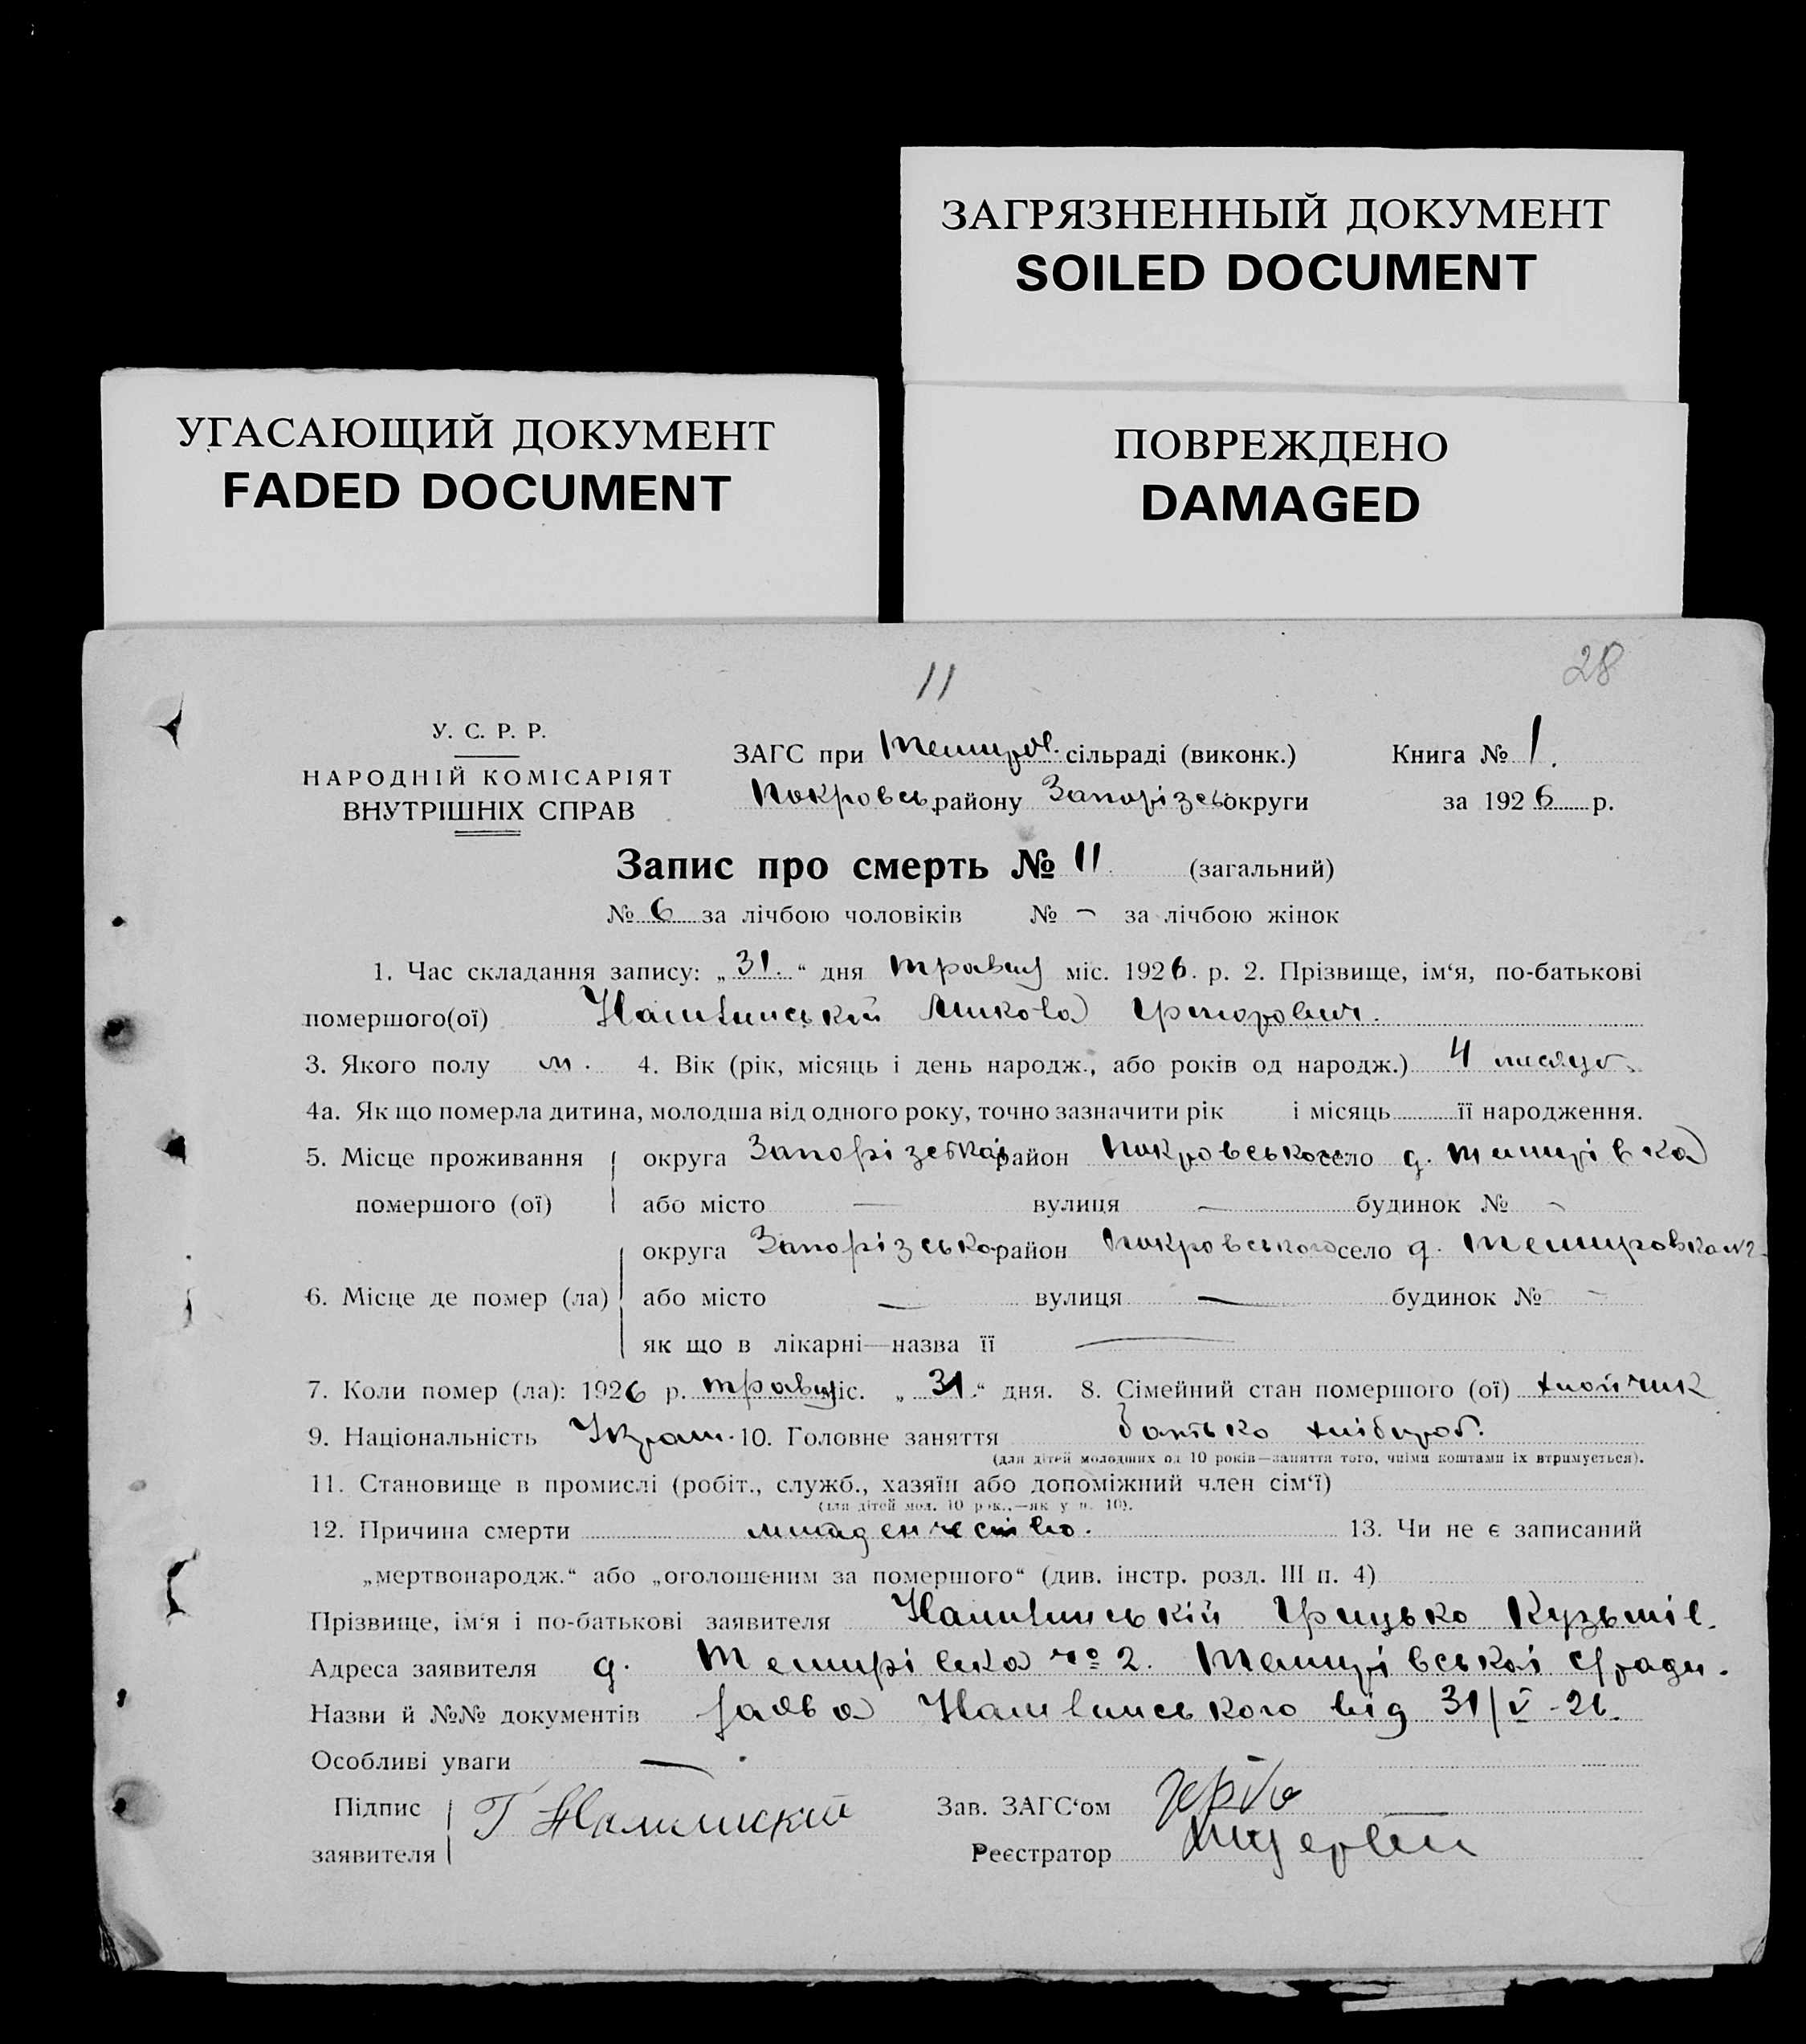 ЗАГРЯЗНЕННЫЙ ДОКУМЕНТ
SOILED DOCUMENT
УГАСАЮЩИЙ ДОКУМЕНТ
FADED DOCUMENT
ПОВРЕЖДЕНО
DAMAGED
11
28
У. С. Р. Р.
НАРОДНІЙ КОМІСАРІЯТ
ВНУТРІШНІХ СПРАВ
ЗАГС при Темиров. сільраді (виконк.)
Покровсь. району Запорізсь округи
Книга № 1.
за 1926 р.
Запис про смерть № 11 (загальний)
№ 6 за лічбою чоловіків № – за лічбою жінок
1. Час складання запису: „31.“ дня травня міс. 1926. р. 2. Прізвище, ім‘я, по-батькові
помершого(ої) Микола Григорович.
3. Якого полу м. 4. Вік (рік, місяць і день народж., або років од народж.) 4 місяця
4а. Як що померла дитина, молодша від одного року, точно зазначити рік і місяць її народження.
5. Місце проживання округа район Покровського село д. Темирівка
помершого (ої) або місто — вулиця — будинок № –
округа район Покровського село д. Темировка №2
6. Місце де помер (ла) або місто — вулиця — будинок № –
як що в лікарні—назва її —
7. Коли помер (ла): 1926 р. травня міс. „31.“ дня. 8. Сімейний стан помершого (ої) хлопчик
9. Національність Україн. 10. Головне заняття батько хлібороб.
(для дітей молодших од 10 років—заняття того, чиїми коштами їх втримується).
11. Становище в промислі (робіт., служб., хазяїн або допоміжний член сім‘ї)
(для дітей мол. 10 рок.,—як у п. 10).
12. Причина смерти младенчество. 13. Чи не є записаний
„мертвонародж.“ або „оголошеним за помершого“ (див. інстр. розд. III п. 4)
Прізвище, ім‘я і по-батькові заявителя Грицько Кузьмів.
Адреса заявителя д. Темирівка № 2. Темирівської с/ради.
Назви й №№ документів від 31/V-26.
Особливі уваги —
Підпис
заявителя
Зав. ЗАГС‘ом
Реєстратор